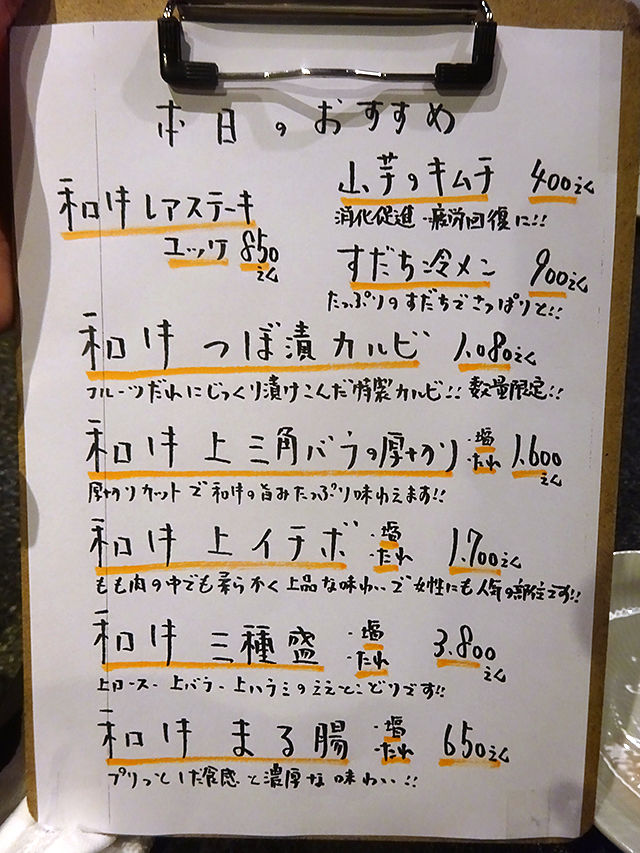 本日のおすすめ
和牛レアステーキ
ユッケ 850えん
山芋のキムチ 400えん
消化促進・疲労回復に!!
すだち冷メン 900えん
たっぷりのすだちでさっぱりと!!
和牛 つぼ漬カルビ 1.080えん
フルーツだれにじっくり漬けこんだ特製カルビ!! 数量限定!!
和牛 上三角バラの厚切り ・塩 ・たれ 1.600えん
厚切りカットで和牛の旨みたっぷり味わえます!!
和牛 上イチボ ・塩 ・たれ 1.700えん
もも肉の中でも柔らかく上品な味わいで女性にも人気の部位です!!
和牛 三種盛 ・塩 ・たれ 3.800えん
上ロース・上バラ・上ハラミのええとこどりです!!
和牛 まる腸 ・塩 ・たれ 650えん
プリっとした食感と濃厚な味わい!!